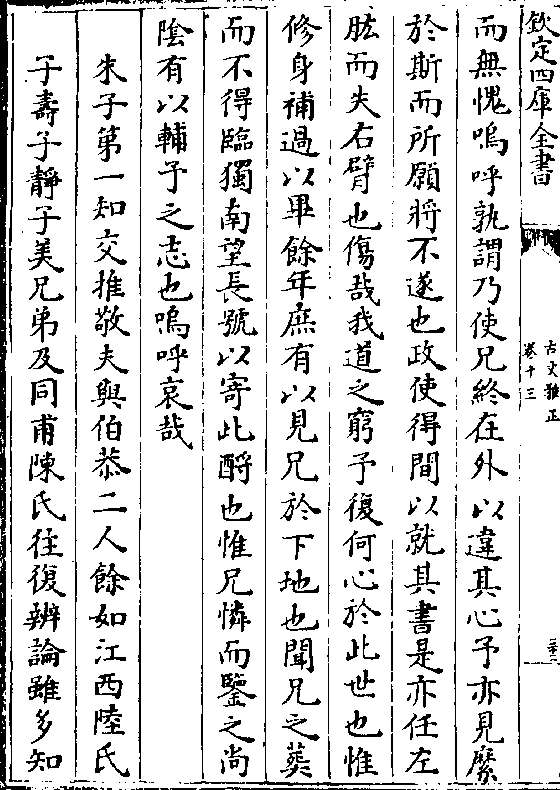 欽定四庫全書
古文雅正
卷十三
而無愧嗚呼孰謂乃使兄終在外以違其心予亦見縻
於斯而所願將不遂也政使得間以就其書是亦任左
肱而失右臂也傷哉我道之窮予復何心於此世也惟
修身補過以畢餘年庶有以見兄於下地也聞兄之葬
而不得臨獨南望長號以寄此酹也惟兄憐而鑒之尚
隂有以輔予之志也嗚呼哀哉
朱子第一知交推敬夫與伯恭二人餘如江西陸氏
子壽子靜子美兄弟及同甫陳氏往復辨論雖多知